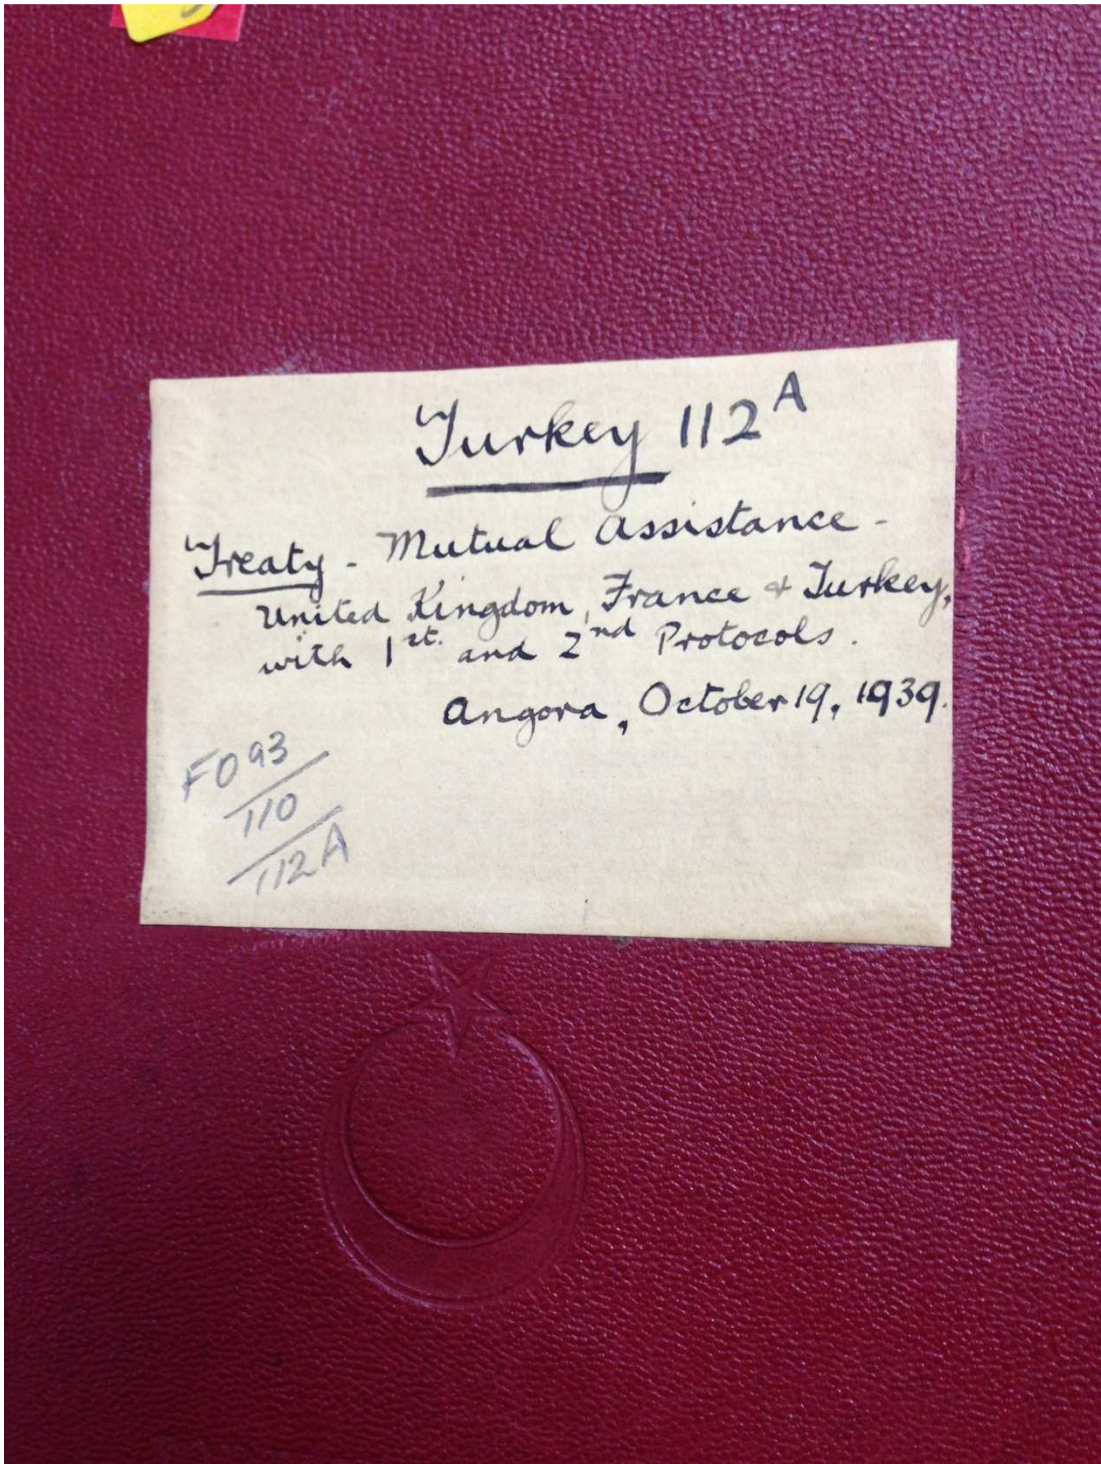 Turkey 112 A
Treaty - Mutual Assistance -
United Kingdom, France & Turkey,
with 1st. and 2nd Protocols.
Angora, October 19, 1939.
FO 93
110
112A